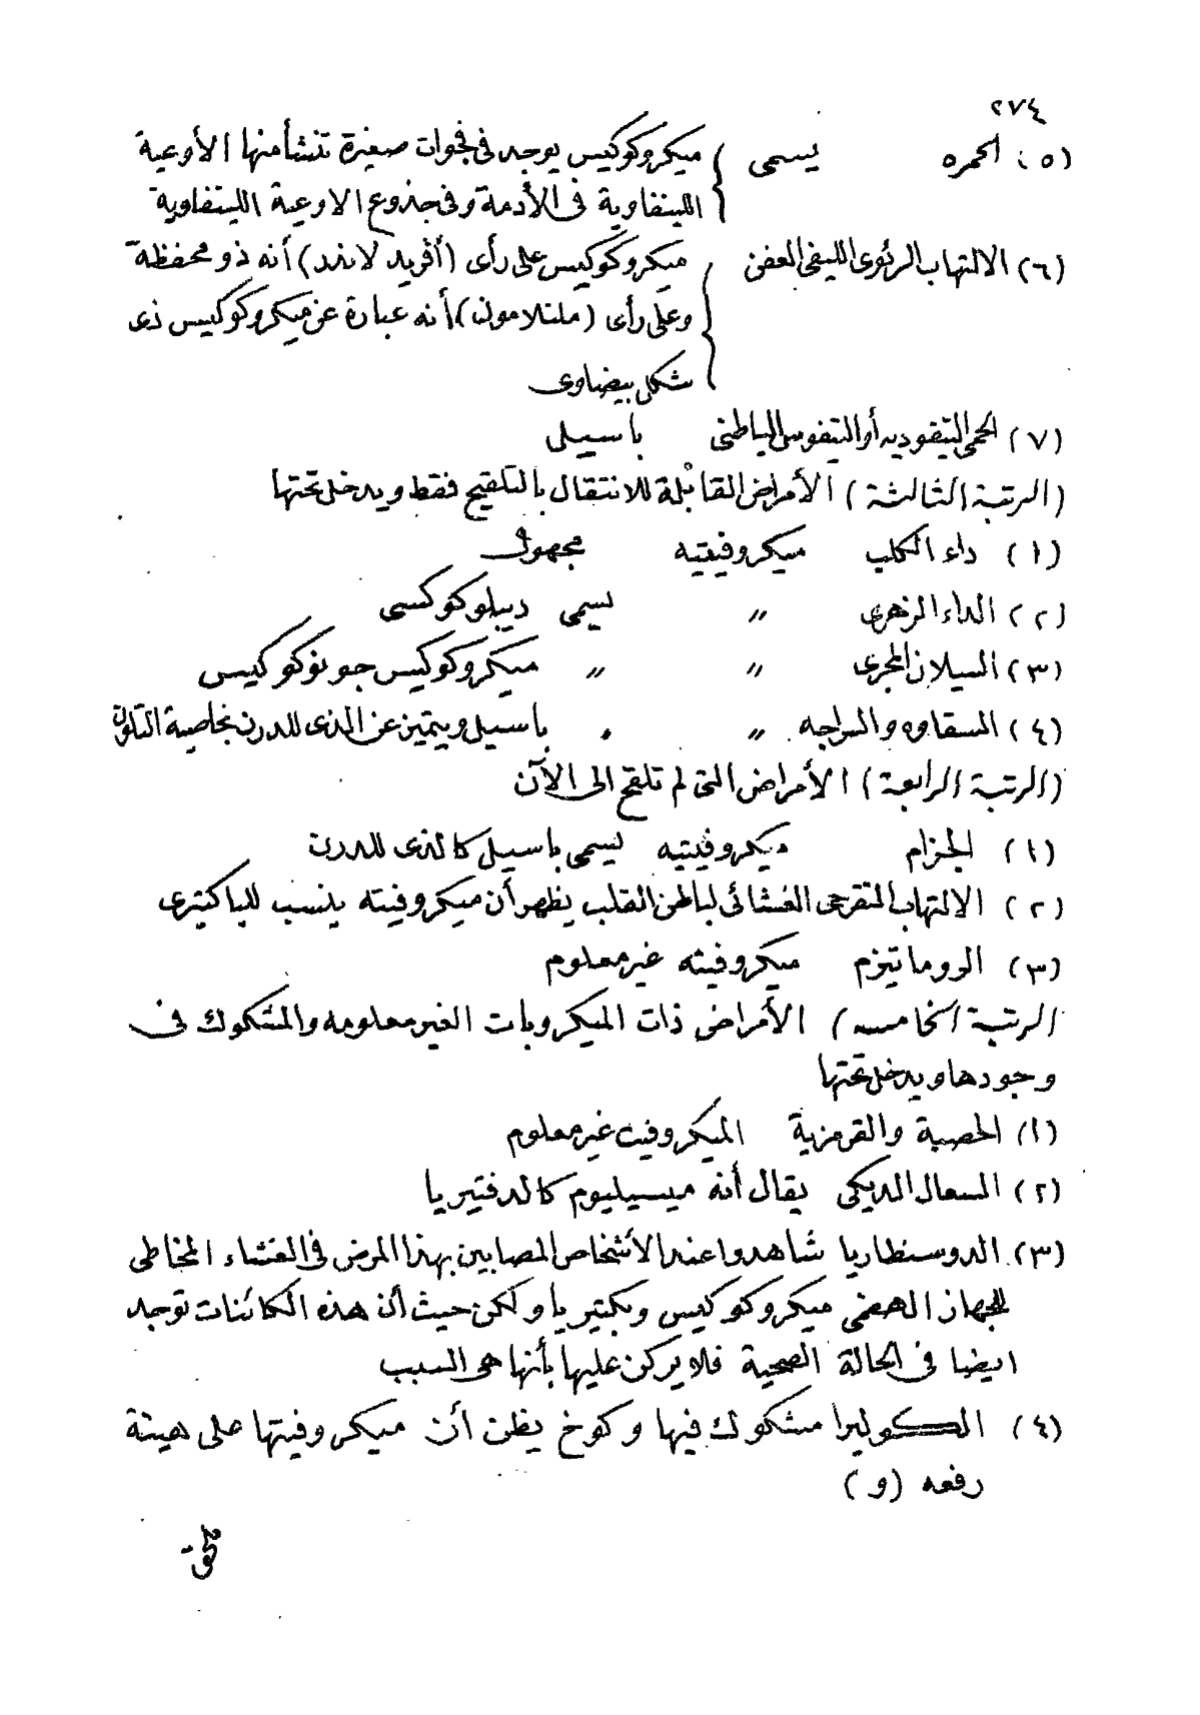 ٢٧٤
(٥) الحمره يسمى ميكروكوكيس يوجد فى فجوات صغيرة تنشأ منها الأوعية
اللينفاوية فى الأدمة وفى جذوع الاوعية اللينفاوية
(٦) الالتهاب الرئوى الليفى العفن ميكروكوكيس على رأى (أفريد لاندد) أنه ذو محفظة
وعلى رأى (ملتلامون) أنه عبارة عن ميكروكوكيس ذى
شكل بيضاوى
(٧) الحمى التيفوديه أو التيفوس الباطنى باسيلى
(الرتبة الثالثة) الأمراض القابلة للانتقال بالتلقيح فقط ويدخل تحتها
(١) داء الكلب ميكروفيتيه مجهول
(٢) الداء الزهرى " يسمى ديبلوكوكسى
(٣) السيلان المجرى " " ميكروكوكيس جونوكوكيس
(٤) السقاوه والسراجه " باسيل ويتميز عن الذى للدرن بخاصية التلون
(الرتبة الرابعة) الأمراض التى لم تلقح الى الآن
(١) الجزام ميكروفيتيه يسمى باسيل كالذى للدرن
(٢) الالتهاب التقرحى الغشائى لباطن القلب يظهر أن ميكروفيته ينسب للباكتيرى
(٣) الروماتيزم ميكروفيته غير معلوم
(الرتبة الخامسه) الأمراض ذات الميكروبات الغير معلومه والمشكوك فى
وجودها ويدخل تحتها
(١) الحصبة والقرمزية الميكروفيت غير معلوم
(٢) السعال الديكى يقال أنه ميسيليوم كالدفتيريا
(٣) الدوسنطاريا شاهدوا عند الأشخاص المصابين بهذا المرض فى الغشاء المخاطى
للجهاز الهضمى ميكروكوكيس وبكتيريا ولكن حيث أن هذه الكائنات توجد
ايضا فى الحالة الصحية فلا يركن عليها بأنها هى السبب
(٤) الكوليرا مشكوك فيها وكوخ يظن أن ميكروفيتها على هيئة
رفعه (و)